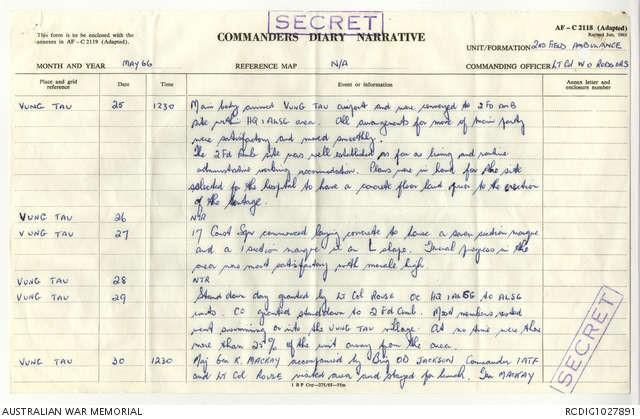 SECRET
This form is to be enclosed with the
annexes in AF-C 2119 (Adapted).
AF - C 2118 (Adapted)
Revised Jun, 1965
COMMANDERS DIARY NARRATIVE
UNIT/FORMATION 2ND FIELD AMBULANCE
MONTH AND YEAR MAY 66 REFERENCE MAP N/A COMMANDING OFFICER LT Col W O RODGERS
Place and grid reference Date Time Event or information Annex letter and enclosure number
VUNG TAU 25 1230 Main body arrived VUNG TAU airport and were conveyed to 2 Fd AMB
site within HQ 1 ALSG area. All arrangements for move of main party
were satisfactory and moved smoothly.
The 2 Fd Amb site was well established as far as living and routine
administrative working accomodation. Plans were in hand for the site
selected for the hospital to have a concrete floor laid prior to the erection
of the tentage.
VUNG TAU 26 NTR
VUNG TAU 27 17 Const Sqn commenced laying concrete to house a seven section marquee
and a 1 section marque in an L shape. General progress in the
area was most satisfactory with morale high.
VUNG TAU 28 NTR
VUNG TAU 29 Stand down day granted by Lt Col ROUSE OC HQ 1 ALSG to ALSG
units. CO granted standdown to 2 Fd Amb. Most members rested
went swimming or into the VUNG TAU village. At no time were there
more than 25% of the unit away from the area.
VUNG TAU 30 1230 Maj Gen K. MACKAY accompanied by Brig OD JACKSON Commander 1ATF
and Lt Col ROUSE visited area and stayed for lunch. Gen MACKAY
SECRET
AUSTRALIAN WAR MEMORIAL
RCDIG1027891